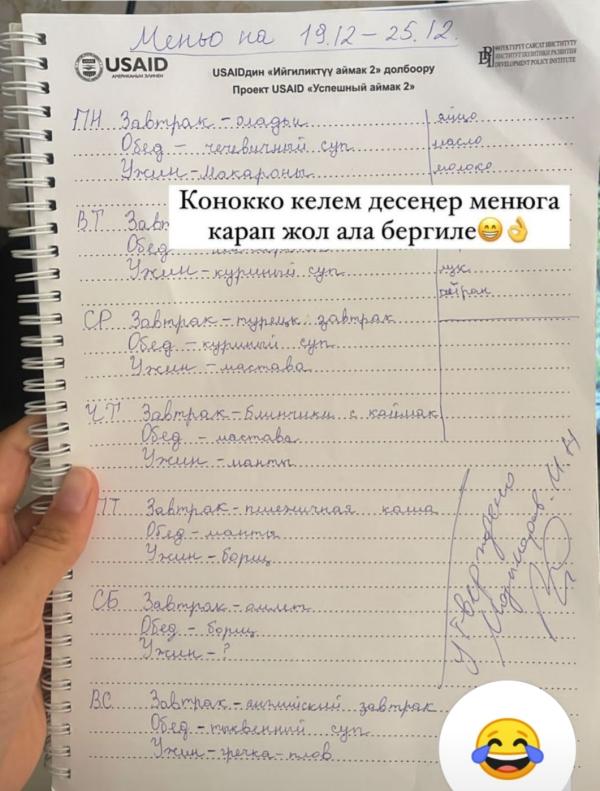 Меньо на 19.12 – 25.12.
USAID
АМЕРИКАНЫН ЭЛИНЕН
USAIDдин «Ийгиликтүү аймак 2» долбоору
Проект USAID «Успешный аймак 2»
ӨНҮКТҮРҮҮ САЯСАТ ИНСТИТУТУ
ИНСТИТУТ ПОЛИТИКИ РАЗВИТИЯ
DEVELOPMENT POLICY INSTITUTE
ПН Завтрак – оладьи
Обед – чечевичный суп
Ужин – макароны
яйцо
масло
молоко
Конокко келем десеңер менюга
карап жол ала бергиле😁👌
ВТ Завт
Обед –
Ужин – куриный суп
лук
айран
СР Завтрак – турецк завтрак
Обед – куриный суп
Ужин – мастава
ЧТ Завтрак – блинчики с каймак
Обед – мастава
Ужин – манты
ПТ Завтрак – пшеничная каша
Обед – манты
Ужин – борщ
СБ Завтрак – омлет
Обед – борщ
Ужин – ?
ВС Завтрак – английский завтрак
Обед – тыквенный суп
Ужин – гречка – плов
Утверждено